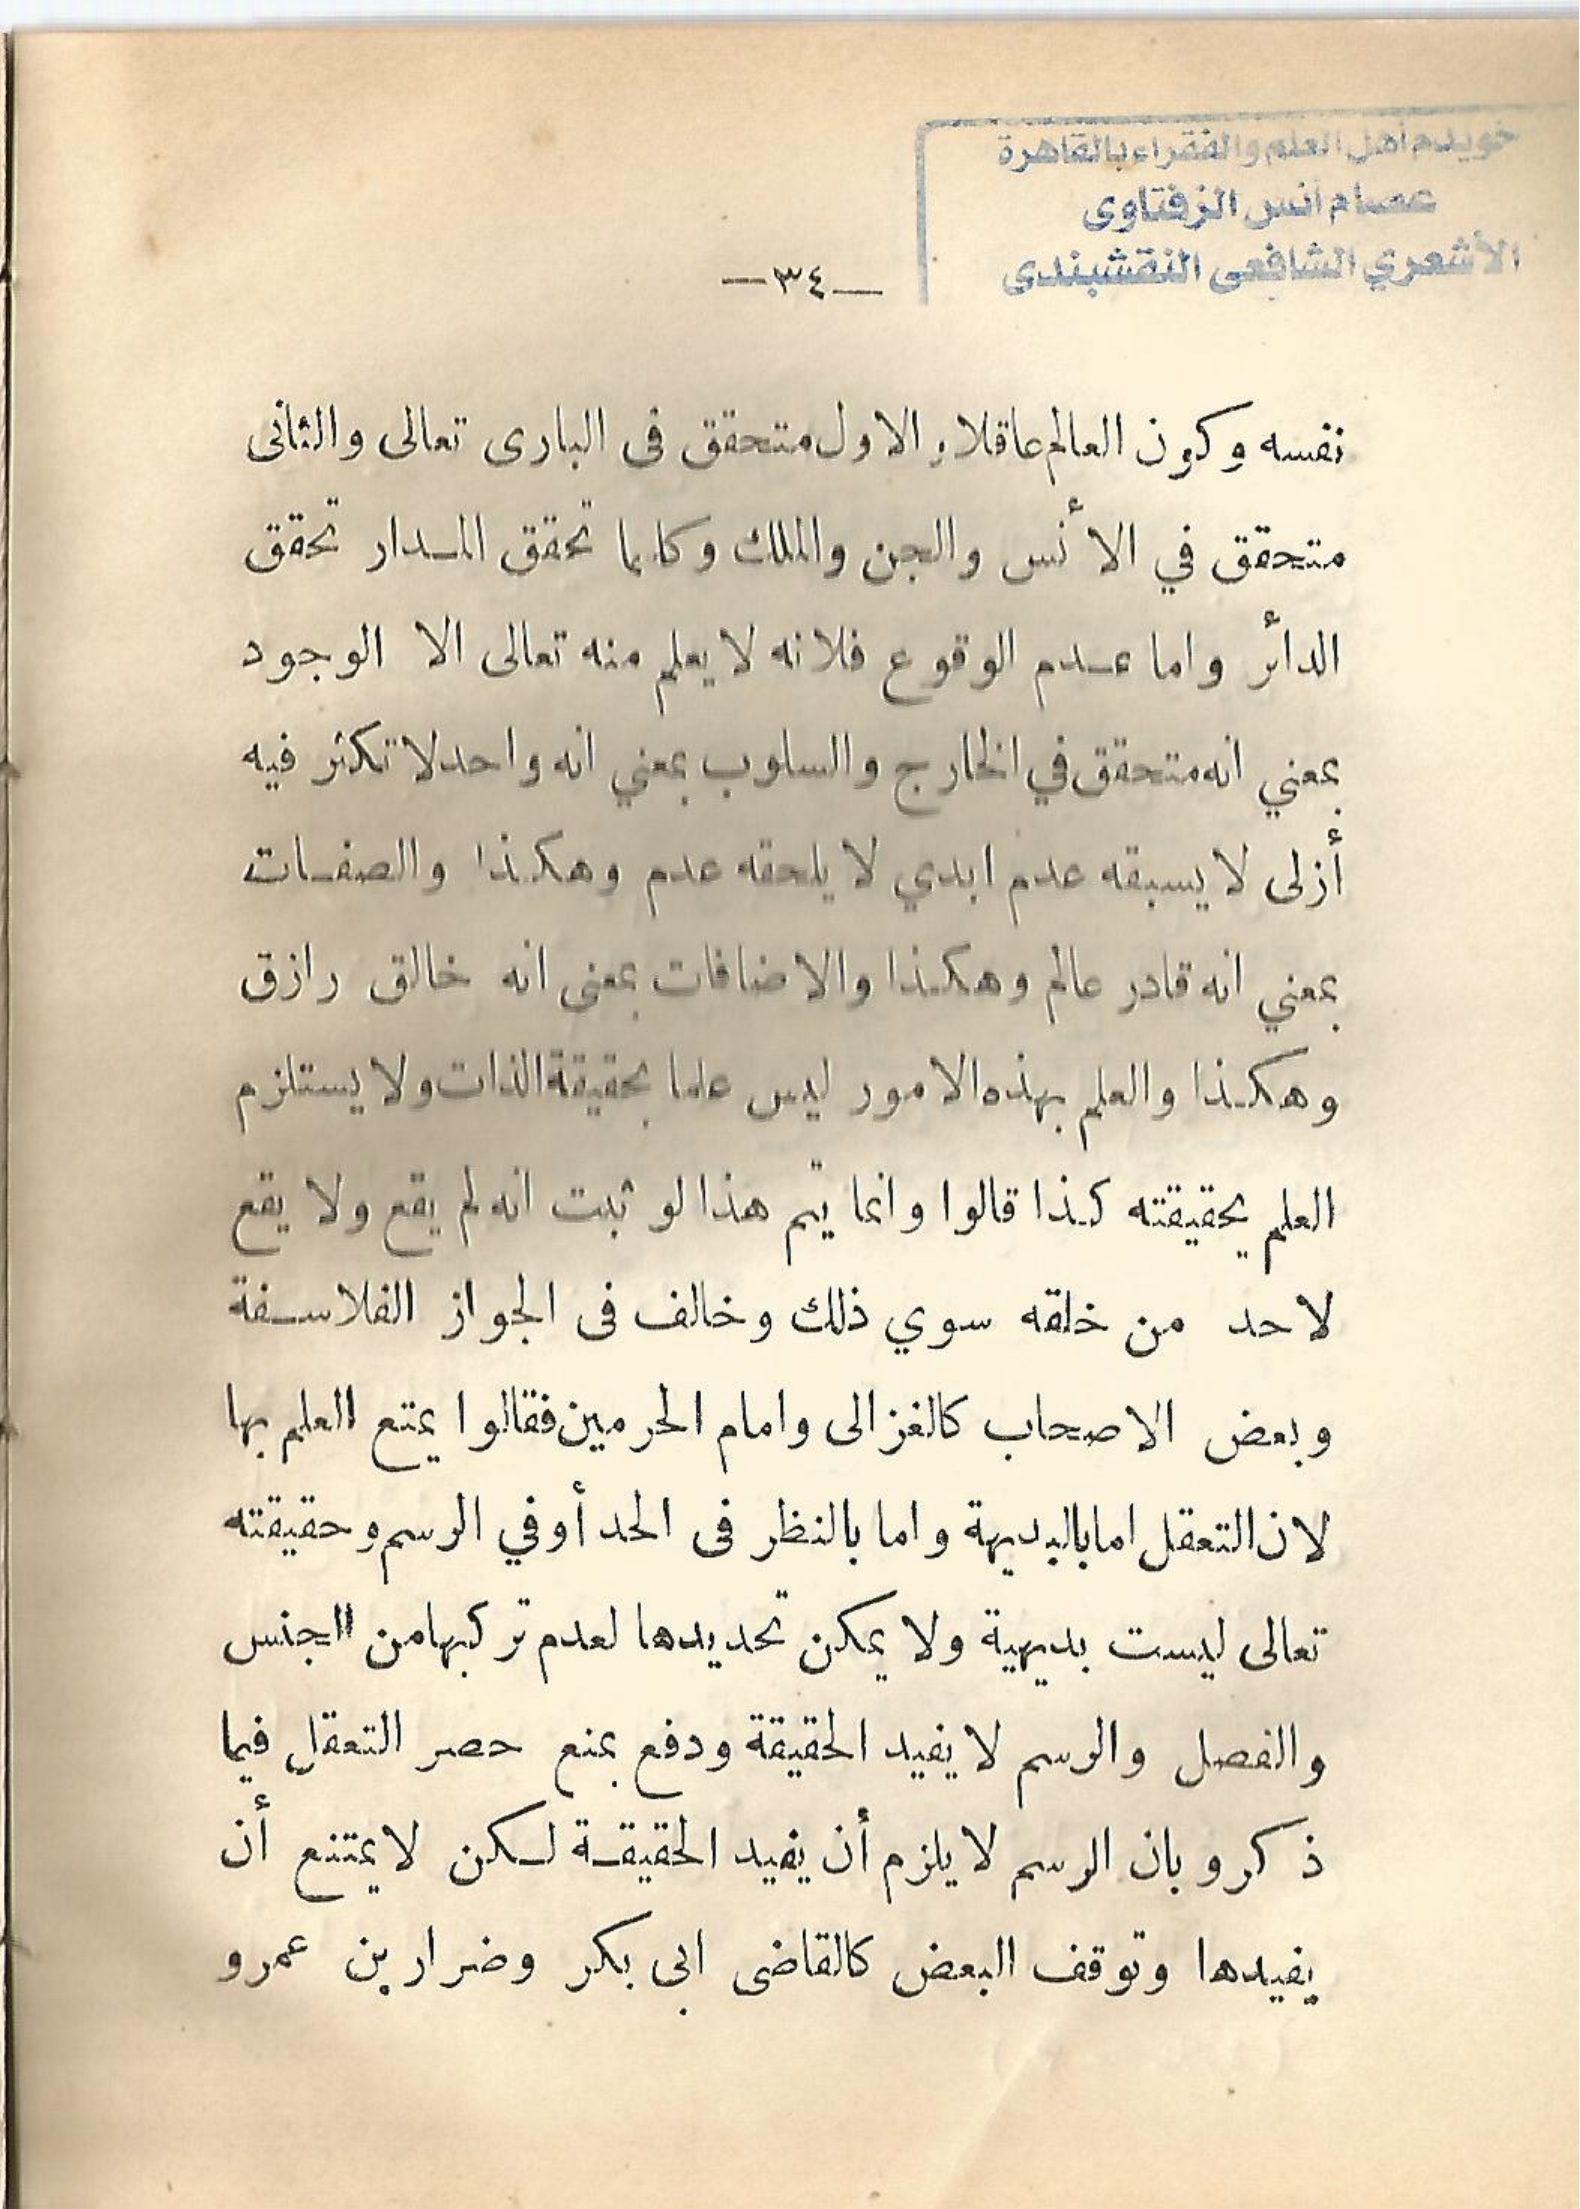 خويدم أهل العلم والفقراء بالقاهرة
عصام أنس الزفتاوى
الأشعري الشافعى النقشبندى
—٣٤—
نفسه وكون العالم عاقلا والاول متحقق فى البارى تعالى والثانى
متحقق في الأنس والجن والملك وكلما تحقق المدار تحقق
الدائر واما عدم الوقوع فلانه لا يعلم منه تعالى الا الوجود
بمعني انه متحقق في الخارج والسلوب بمعني انه واحد لا تكثر فيه
أزلى لا يسبقه عدم ابدي لا يلحقه عدم وهكذا والصفات
بمعني انه قادر عالم وهكذا والاضافات بمعنى انه خالق رازق
وهكذا والعلم بهذه الامور ليس علما بحقيقة الذات ولا يستلزم
العلم بحقيقته كذا قالوا وانما يتم هذا لو ثبت انه لم يقع ولا يقع
لاحد من خلقه سوي ذلك وخالف فى الجواز الفلاسفة
وبعض الاصحاب كالغزالى وامام الحرمين فقالوا يمتع العلم بها
لان التعقل اما بالبديهة واما بالنظر فى الحد أوفي الرسم وحقيقته
تعالى ليست بديهية ولا يمكن تحديدها لعدم تركبها من الجنس
والفصل والرسم لا يفيد الحقيقة ودفع بمنع حصر التعقل فيما
ذكر وبان الرسم لا يلزم أن يفيد الحقيقة لكن لا يمتنع أن
يفيدها وتوقف البعض كالقاضى ابى بكر وضرار بن عمرو